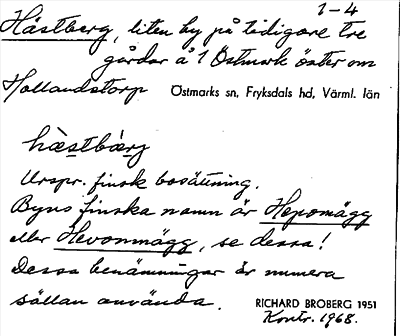 1-4
Hästberg, liten by på tidigare tre
gårdar å 1 Östmark öster om
Hollandstorp Östmarks sn, Fryksdals hd, Värml. län
hä̀stbærg
Urspr. finsk bosättning.
Byns finska namn är Hepomägg
eller Hevonmägg, se dessa!
Dessa benämningar är numera
sällan använda. RICHARD BROBERG 1951
Kontr. 1968.